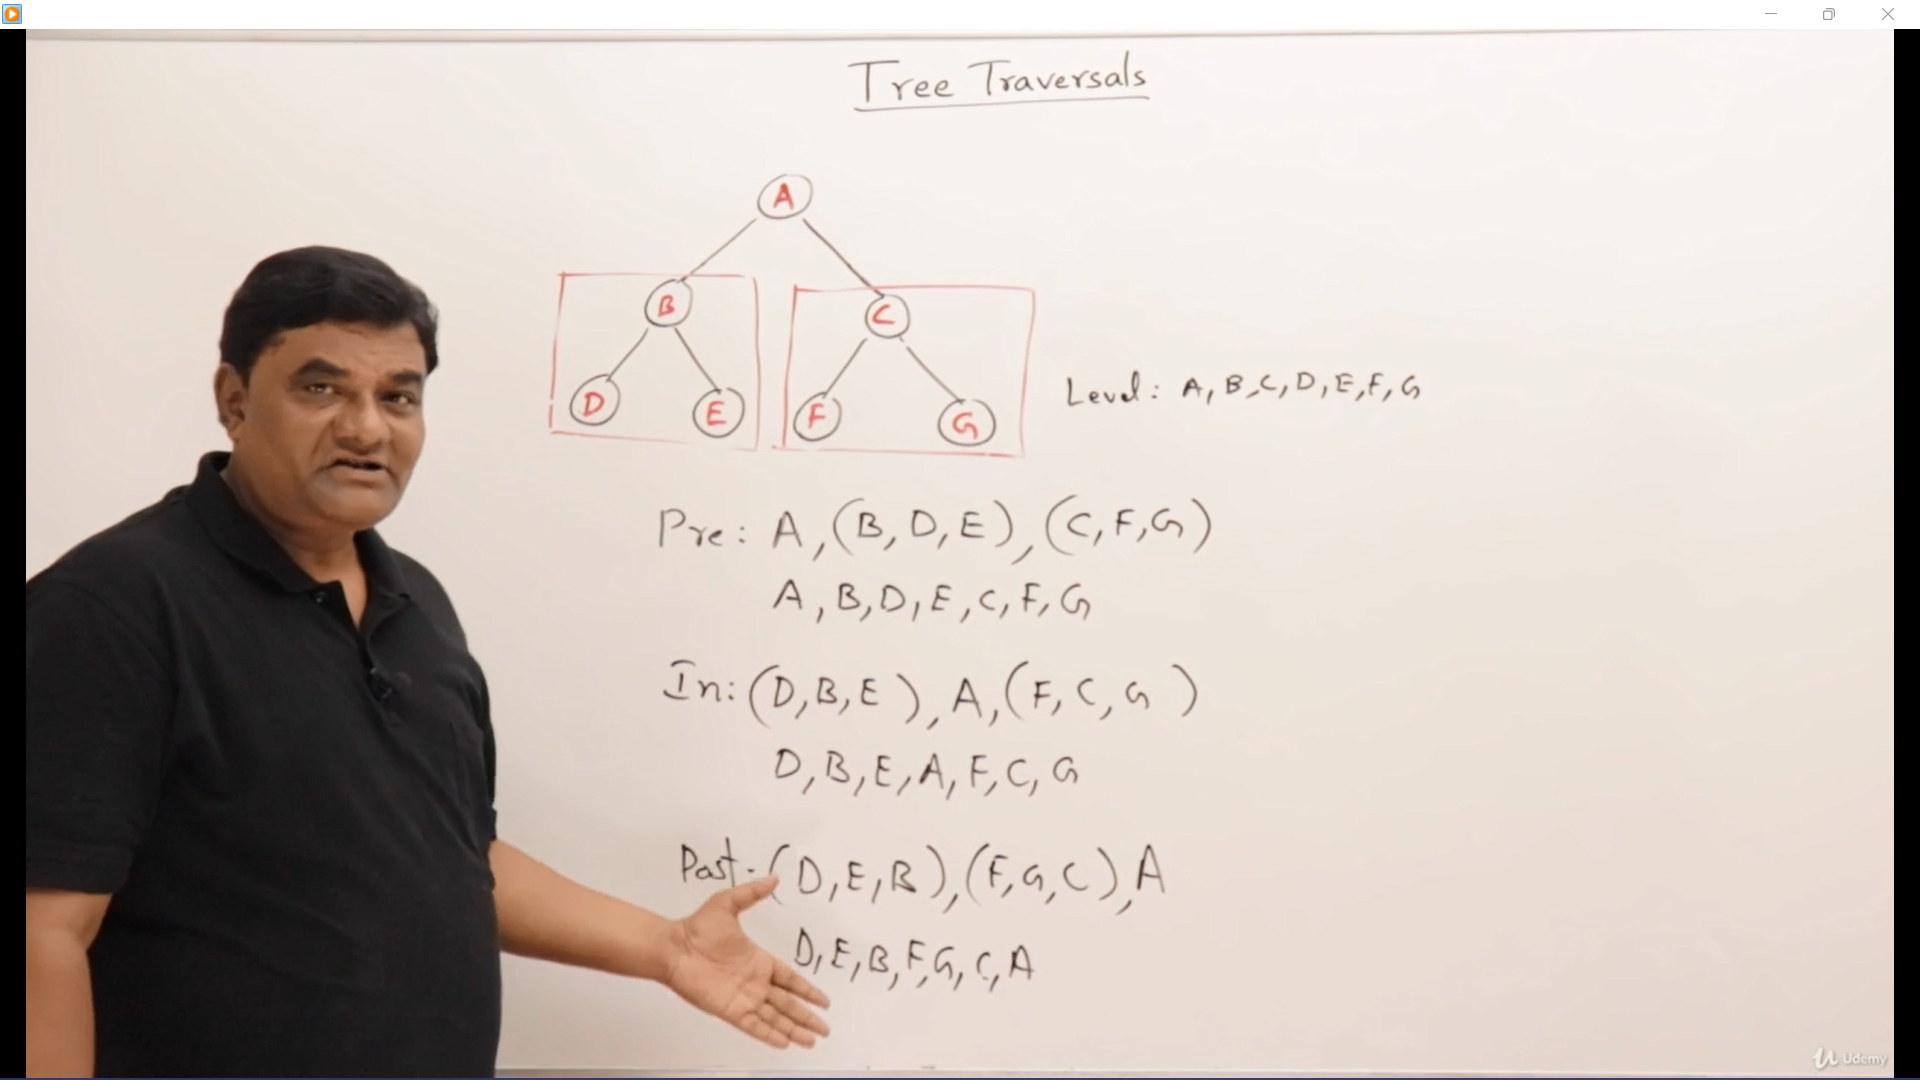 Tree Traversals
A
B
C
D
E
F
G
Level: A, B, C, D, E, F, G
Pre: A, (B, D, E), (C, F, G)
A, B, D, E, C, F, G
In: (D, B, E), A, (F, C, G)
D, B, E, A, F, C, G
Post: (D, E, B), (F, G, C), A
D, E, B, F, G, C, A
Udemy